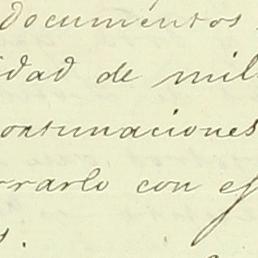 documentos
idad de mil
ontunaciones
rrarlo con ef
s.